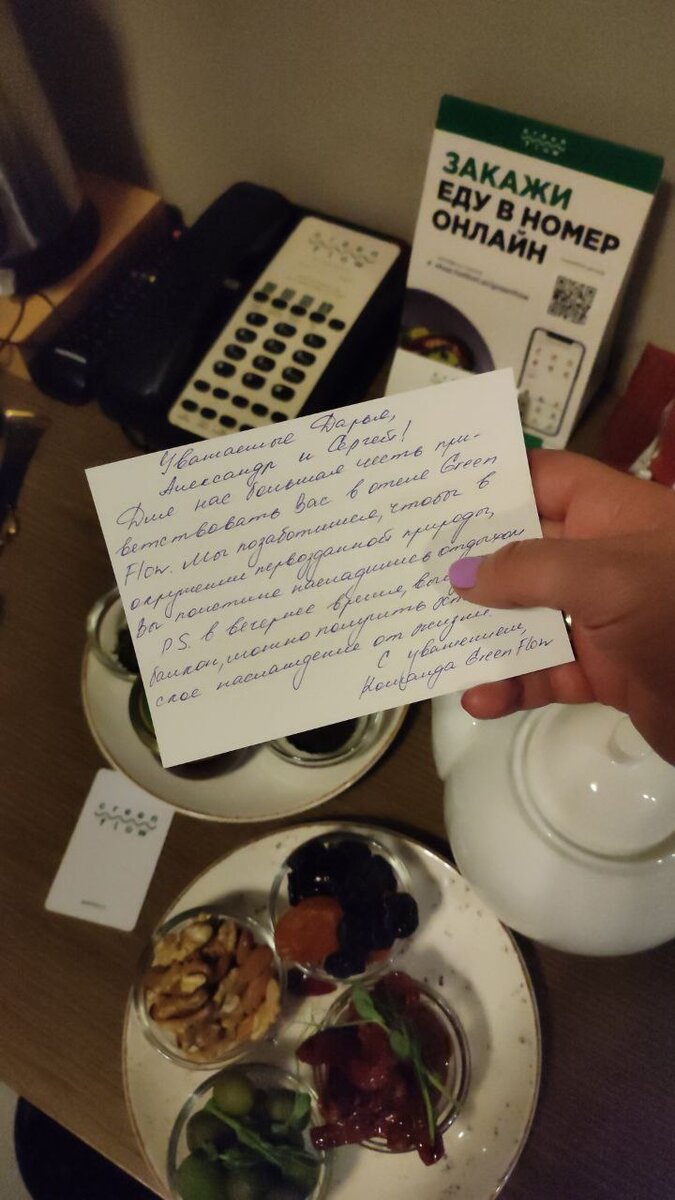 green
flow
ЗАКАЖИ
ЕДУ В НОМЕР
ОНЛАЙН
green
flow
Уважаемые Дарья,
Александр и Сергей!
Для нас большая честь при-
ветствовать Вас в отеле Green
Flow. Мы позаботимся, чтобы в
окружении первозданной природы,
Вы поистине насладились отдыхом
P.S. в вечернее время,
балкон, можно получить
ское наслаждение от жизни
С уважением,
Команда Green Flow
green
flow